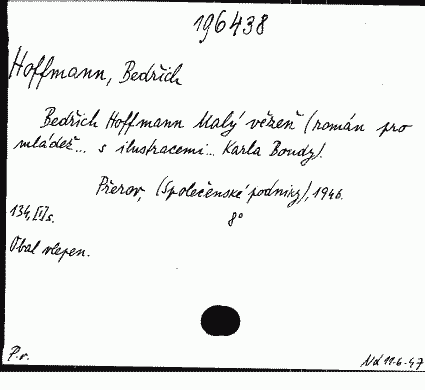 196438
Hoffmann, Bedřich
Bedřich Hoffmann Malý vězeň (román pro
mládež... s ilustracemi... Karla Boudy).
Přerov, (Společenské podniky), 1946.
134, [I] s. 8°
Obal vlepen.
P.v. Nd 11-6-47